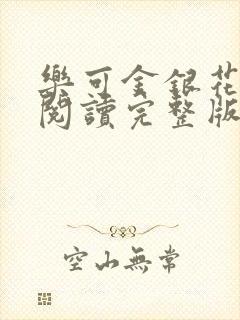 樂可金銀花
閱讀完整版
空山無常